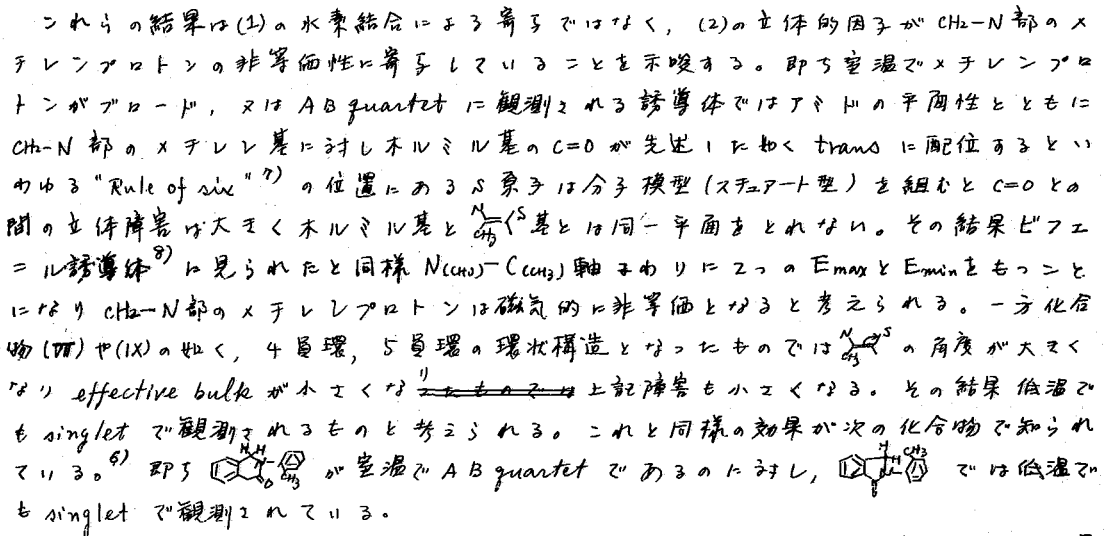 これらの結果は(1)の水素結合による寄与ではなく, (2)の立体的因子がCH2-N部のメ
チレンプロトンの非等価性に寄与していることを示唆する。即ち室温でメチレンプロ
トンがブロード, 又はAB quartetに観測される誘導体ではアミドの平面性とともに
CH2-N部のメチレン基に対しホルミル基のC=Oが先述した如くtransに配位するとい
わゆる"Rule of six"7)の位置にあるS原子は分子模型(スチュアート型)を組むとC=Oとの
間の立体障害は大きくホルミル基と N CH3 S 基とは同一平面をとれない。その結果ビフェ
ニル誘導体8)に見られたと同様N(CHO)-C(CH3)軸まわりに2つのEmaxとEminをもつこと
になりCH2-N部のメチレンプロトンは磁気的に非等価となると考えられる。一方化合
物(VIII)や(IX)の如く, 4員環, 5員環の環状構造となったものでは N CH3 S の角度が大きく
なり effective bulkが小さくなり上記障害も小さくなる。その結果低温で
もsingletで観測されるものと考えられる。これと同様の効果が次の化合物で知られ
ている。6) 即ち H H N O CH3 が室温でAB quartetであるのに対し, H H N O CH3 では低温で
もsingletで観測されている。